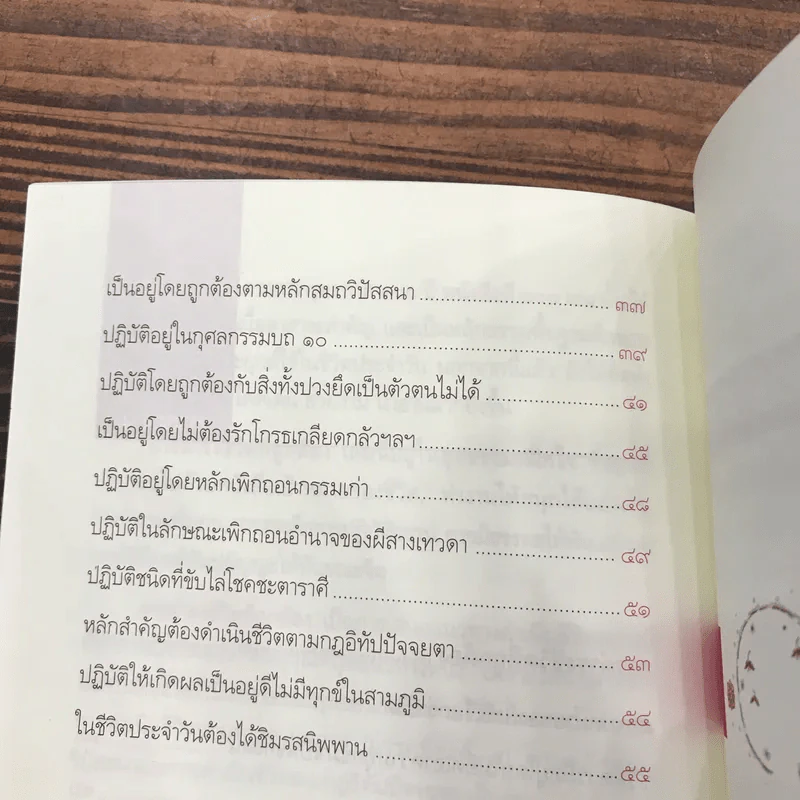 เป็นอยู่โดยถูกต้องตามหลักสมถวิปัสสนา ........................ ๓๗
ปฏิบัติอยู่ในกุศลกรรมบถ ๑๐ ........................ ๓๙
ปฏิบัติโดยถูกต้องกับสิ่งทั้งปวงยึดเป็นตัวตนไม่ได้ ........................ ๔๑
เป็นอยู่โดยไม่ต้องรักโกรธเกลียดกลัวฯลฯ ........................ ๔๕
ปฏิบัติอยู่โดยหลักเพิกถอนกรรมเก่า ........................ ๔๘
ปฏิบัติในลักษณะเพิกถอนอำนาจของผีสางเทวดา ........................ ๔๙
ปฏิบัติชนิดที่ขับไล่โชคชะตาราศี ........................ ๕๑
หลักสำคัญต้องดำเนินชีวิตตามกฎอิทัปปัจจยตา ........................ ๕๓
ปฏิบัติให้เกิดผลเป็นอยู่ดีไม่มีทุกข์ในสามภูมิ ........................ ๕๔
ในชีวิตประจำวันต้องได้ชิมรสนิพพาน ........................ ๕๕